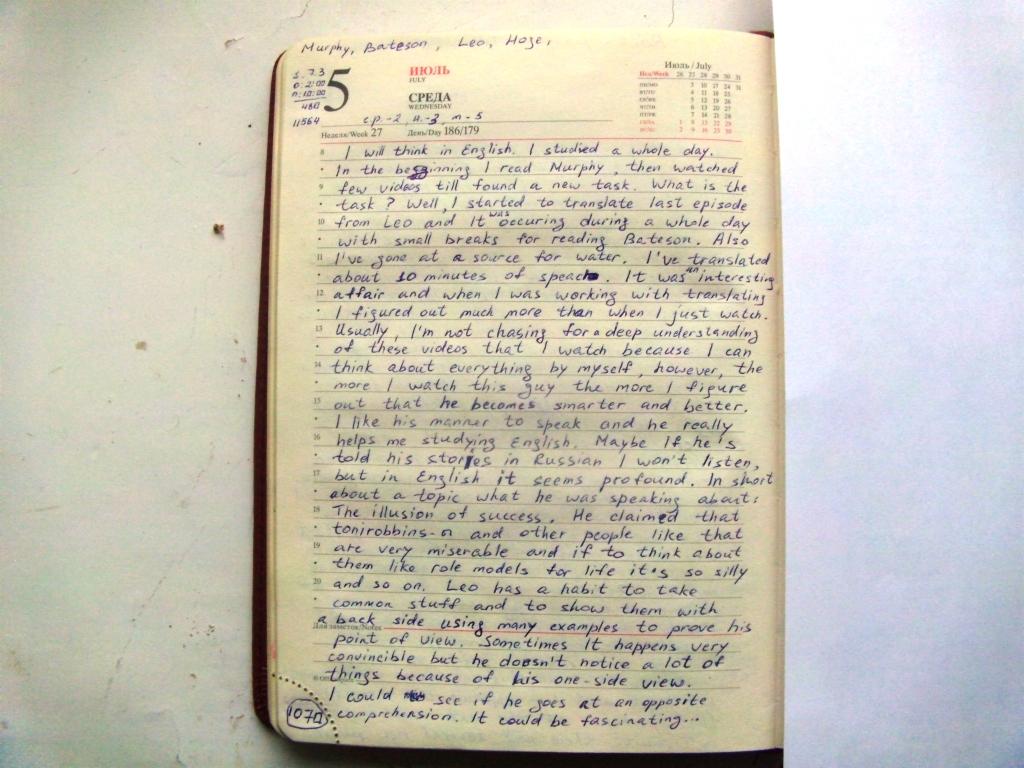 Murphy, Bateson, Leo, Hoze,
S. 7.3
0:2:00
n:10:00
480
11564
5
ИЮЛЬ
JULY
СРЕДА
WEDNESDAY
Июль / July
Нед/Week 26 27 28 29 30 31
ПН/МО 3 10 17 24 31
ВТ/TU 4 11 18 25
СР/WE 5 12 19 26
ЧТ/TH 6 13 20 27
ПТ/FR 7 14 21 28
СБ/SA 1 8 15 22 29
ВС/SU 2 9 16 23 30
с.р.-2, и.-3, т-5
Неделя/Week 27 День/Day 186/179
8 I will think in English. I studied a whole day.
In the beginning I read Murphy, then watched
9 few videos till found a new task. What is the
task? Well, I started to translate last episode
10 from Leo and It was occuring during a whole day
with small breaks for reading Bateson. Also
11 I've gone at a source for water. I've translated
about 10 minutes of speach. It was an interesting
12 affair and when I was working with translating
I figured out much more than when I just watch.
13 Usually, I'm not chasing for a deep understanding
of these videos that I watch because I can
14 think about everything by myself, however, the
more I watch this guy the more I figure
15 out that he becomes smarter and better.
I like his manner to speak and he really
16 helps me studying English. Maybe If he's
told his stories in Russian I won't listen,
17 but in English it seems profound. In short
about a topic what he was speaking about:
18 The illusion of success. He claimed that
tonirobbins-s and other people like that
19 are very miserable and if to think about
them like role models for life it's so silly
20 and so on. Leo has a habit to take
common stuff and to show them with
a back side using many examples to prove his
Для заметок/Notes
point of view. Sometimes It happens very
convincible but he doesn't notice a lot of
things because of his one-side view.
I could see if he goes at an opposite
comprehension. It could be fascinating...
107